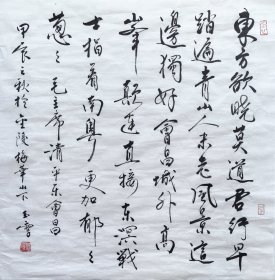 東方欲曉莫道君行早
踏遍青山人未老風景這
邊獨好會昌城外高
峯顛連直接东溟戰
士指看南粤更加郁々
葱々毛主席清平乐會昌
甲辰之秋於金陵梅華山下